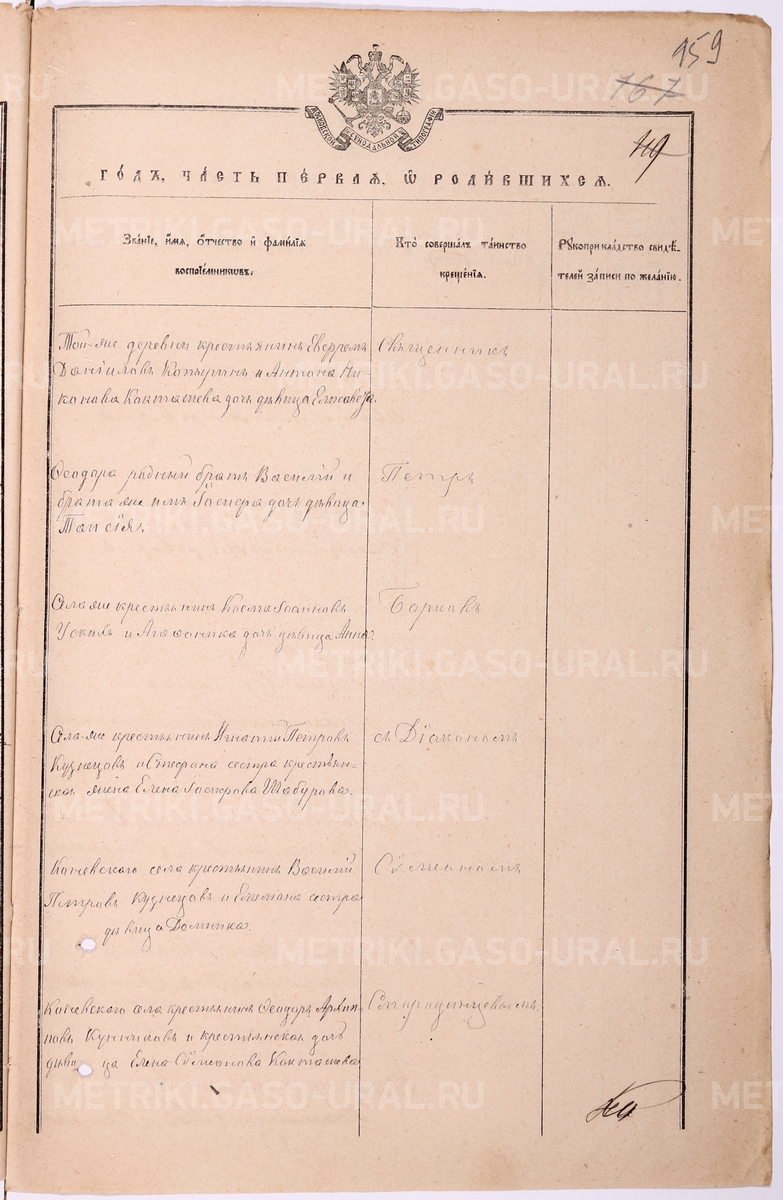 159
167
МОСКОВСКОЙ СѴНОДАЛЬНОЙ ТИПОГРАФІИ
ГОДЪ, ЧАСТЬ ПЕРВАЯ, Ѡ РОДИВШИХСЯ.
Званіе, имя, отчество и фамилія
воспріемниковъ.
Кто совершалъ таинство
крещенія.
Рукоприкладство свидѣ-
телей записи по желанію.
Той-же деревни крестьянинъ Евфремъ
Даніиловъ и Антона Ни-
конова дочь дѣвица Елисавета.
Священникъ
Ѳеодора родный братъ Василій и
брата же имъ дочь дѣвица
Таисія.
Петръ
Села-же крестьянинъ Косма Іоанновъ
и Агаѳоника дочь дѣвица Анна
Барковъ
Села-же крестьянинъ Игнатій Петровъ
Кузнецовъ и Стефана сестра крестьян-
ская жена Елена Шабурова.
съ Діакономъ
Коневскаго села крестьянинъ Василій
Петровъ Кузнецовъ и сестра
дѣвица Домника.
Сѵмеономъ
Коневскаго села крестьянинъ Ѳеодоръ Архип-
повъ и крестьянская дочь
дѣвица Елена Сѵмеонова
Стародинцевымъ.
METRIKI.GASO-URAL.RU